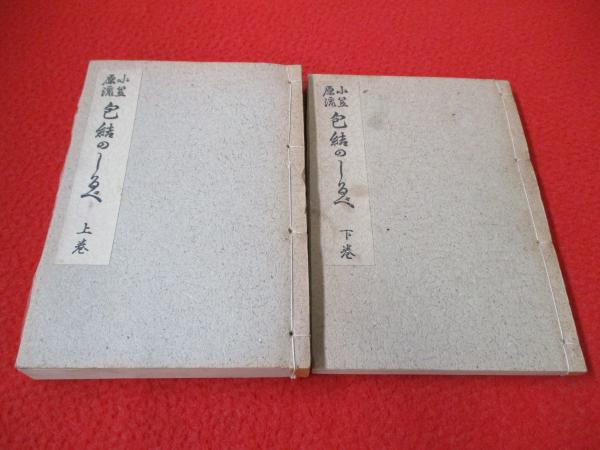 小笠原流
包結のしるべ
上巻
小笠原流
包結のしるべ
下巻